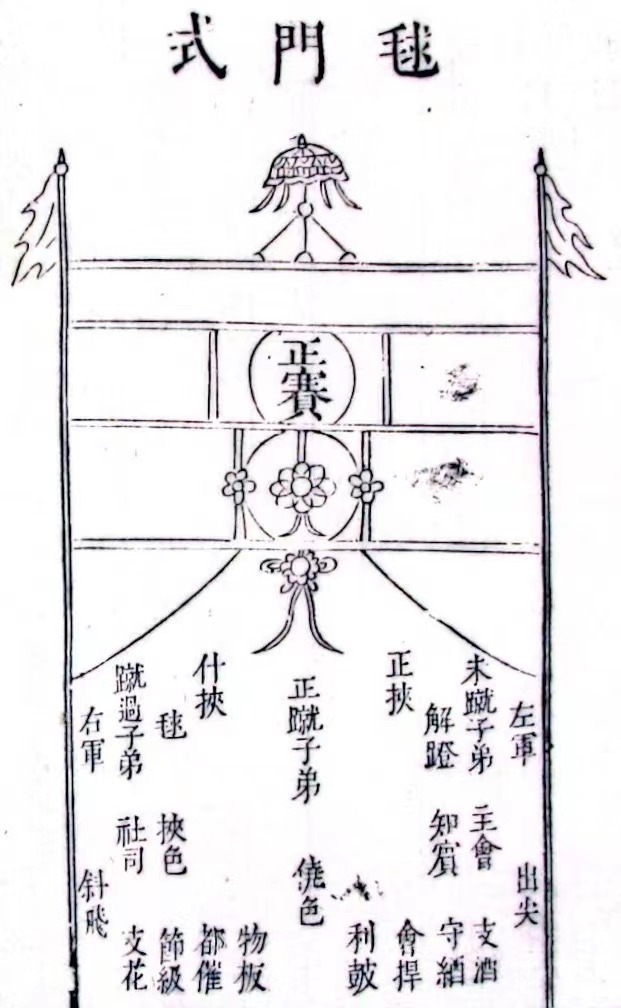 毬門式
正賽
左軍
出尖
未蹴子弟
主會
支酒
解蹬
知賓
守網
正挾
會捍
利鼓
正蹴子弟
僥色
什挾
物板
都催
毬
挾色
節級
蹴過子弟
社司
支花
右軍
斜飛